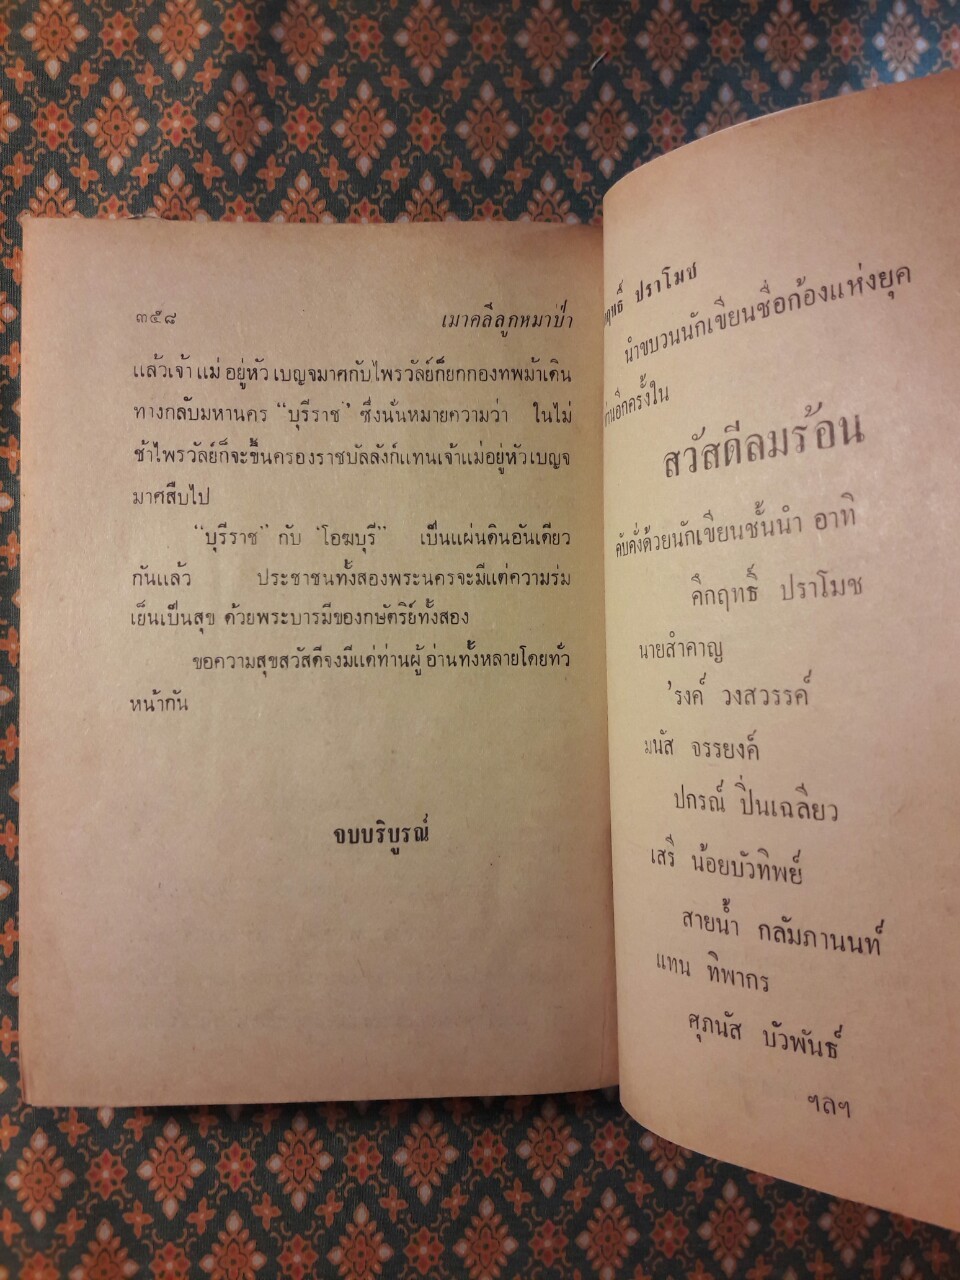 ๓๕๘ เมาคลีลูกหมาป่า
แล้วเจ้า แม่ อยู่หัว เบญจมาศกับไพรวัลย์ก็ยกกองทพม้าเดิน
ทางกลับมหานคร "บุรีราช" ซึ่งนั่นหมายความว่า ในไม่
ช้าไพรวัลย์ก็จะขึ้นครองราชบัลลังก์แทนเจ้าแม่อยู่หัวเบญจ
มาศสืบไป
"บุรีราช" กับ "โอฆบุรี" เป็นแผ่นดินอันเดียว
กันแล้ว ประชาชนทั้งสองพระนครจะมีแต่ความร่ม
เย็นเป็นสุข ด้วยพระบารมีของกษัตริย์ทั้งสอง
ขอความสุขสวัสดีจงมีแด่ท่านผู้ อ่านทั้งหลายโดยทั่ว
หน้ากัน
จบบริบูรณ์
ปราโมช
นำขบวนนักเขียนชื่อก้องแห่งยุค
อีกครั้งใน
สวัสดีลมร้อน
คับคั่งด้วยนักเขียนชั้นนำ อาทิ
คึกฤทธิ์ ปราโมช
นายสำคาญ
'รงค์ วงสวรรค์
มนัส จรรยงค์
ปกรณ์ ปิ่นเฉลียว
เสรี น้อยบัวทิพย์
สายน้ำ กลัมภานนท์
แทน ทิพากร
ศุภนัส บัวพันธ์
ฯลฯ